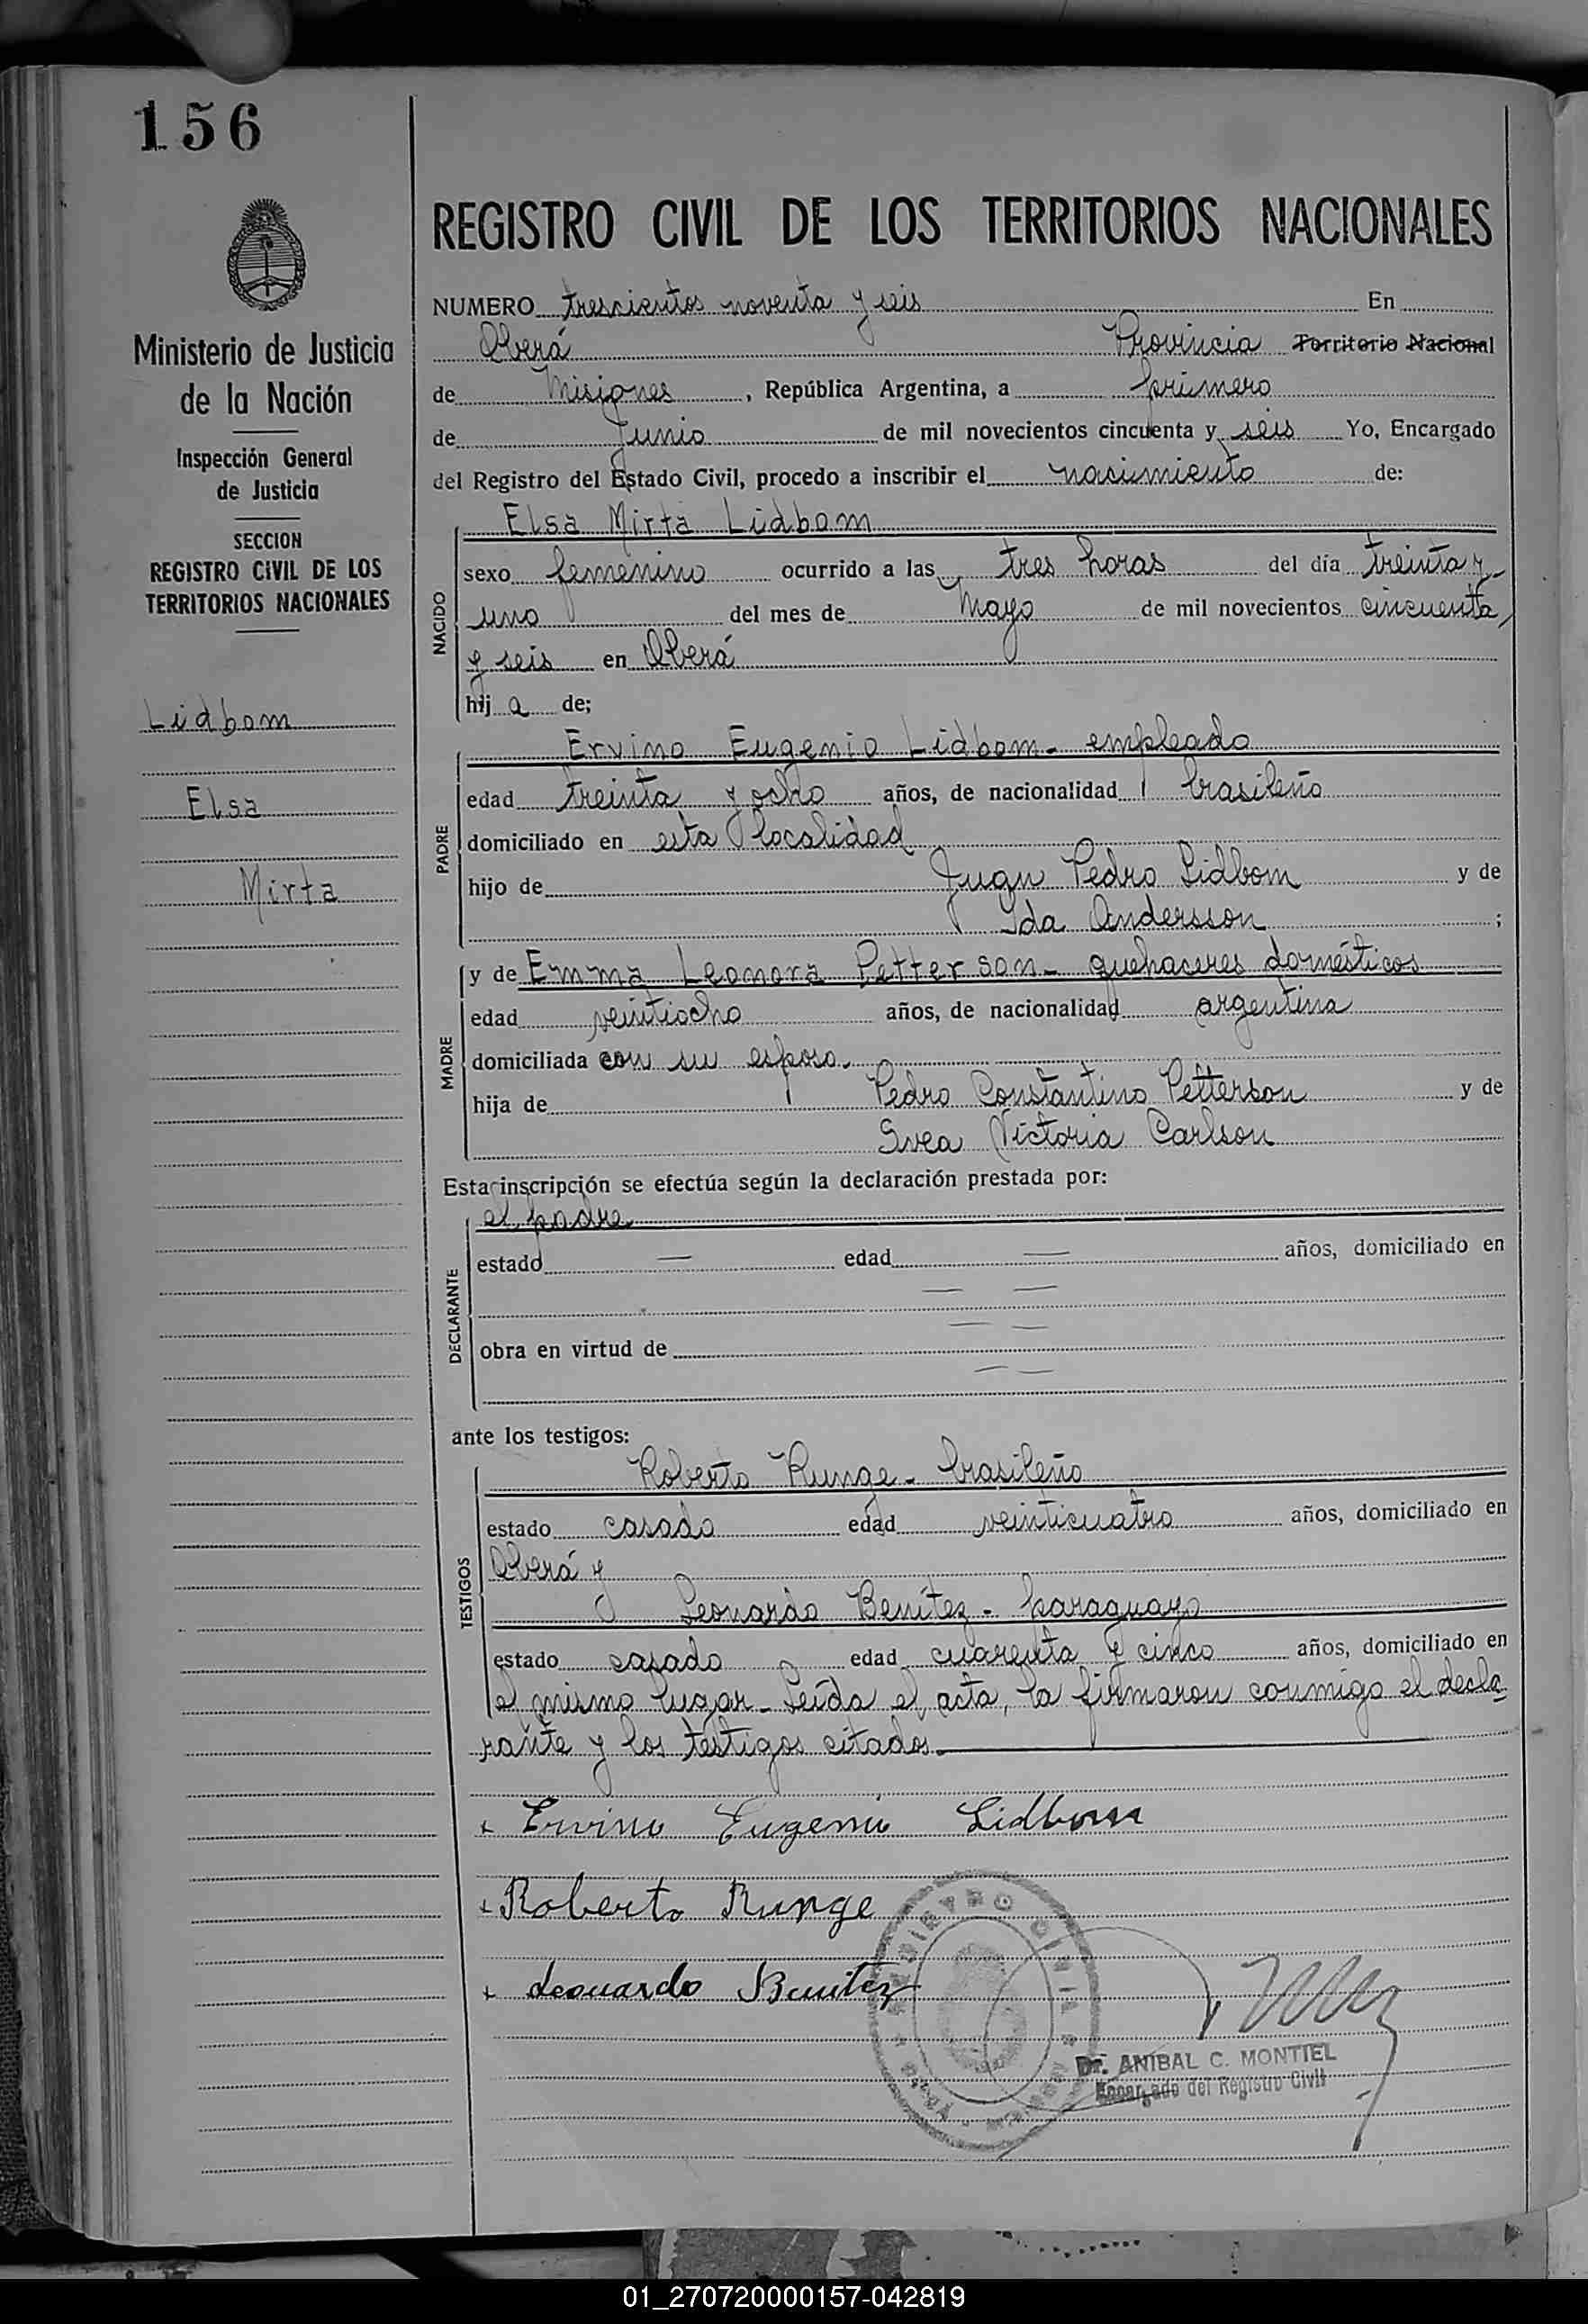 156
Ministerio de Justicia
de la Nación
Inspección General
de Justicia
SECCION
REGISTRO CIVIL DE LOS
TERRITORIOS NACIONALES
Lidbom
Elsa
Mirta
REGISTRO CIVIL DE LOS TERRITORIOS NACIONALES
NUMERO trescientos noventa y seis En
Oberá Provincia Territorio Nacional
de Misiones, República Argentina, a primero
de Junio de mil novecientos cincuenta y seis Yo, Encargado
del Registro del Estado Civil, procedo a inscribir el nacimiento de:
NACIDO
Elsa Mirta Lidbom
sexo femenino ocurrido a las tres horas del día treinta y
uno del mes de Mayo de mil novecientos cincuenta
y seis en Oberá
hij a de;
PADRE
Ervino Eugenio Lidbom - empleado
edad treinta y ocho años, de nacionalidad brasileño
domiciliado en esta localidad
hijo de Juan Pedro Lidbom y de
Ida Andersson ;
MADRE
y de Emma Leonora Petterson - quehaceres domésticos
edad veintiocho años, de nacionalidad argentina
domiciliada con su esposo.
hija de Pedro Constantino Petterson y de
Svea Victoria Carlson
Esta inscripción se efectúa según la declaración prestada por:
DECLARANTE
el padre
estado — edad — años, domiciliado en
— —
obra en virtud de — —
— —
ante los testigos:
TESTIGOS
Roberto Runge - brasileño
estado casado edad veinticuatro años, domiciliado en
Oberá y
Leonardo Benítez - paraguayo
estado casado edad cuarenta y cinco años, domiciliado en
el mismo lugar - Leída el acta, la firmaron conmigo el decla-
rante y los testigos citados.
Ervino Eugenio Lidbom
Roberto Runge
Leonardo Benitez
Dr. ANIBAL C. MONTIEL
Encargado del Registro Civil
01_270720000157-042819